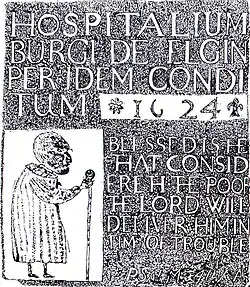 HOSPITALIUM
BURGI DE ELGIN
PER IDEM CONDI
TUM
1624
BLESSED IS HE
THAT CONSID
ERETH THE POO
THE LORD WILL
DELIVER HIM IN
TIM OF TROUBLE